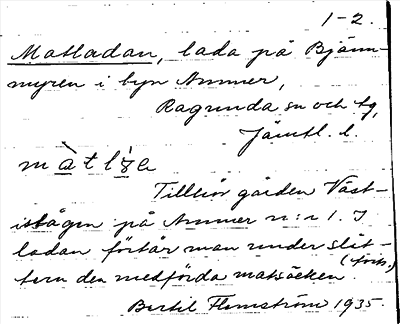 1-2.
Matladan, lada på Bjänn-
myren i byn Ammer,
Ragunda sn och tg,
Jämtl. l.
Tillhör gården Väst-
istågen på Ammer n:r 1. I
ladan förtär man under slåt-
tern den medförda matsäcken.
(forts.)
Bertil Flemström 1935.